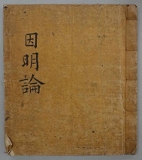 因明論